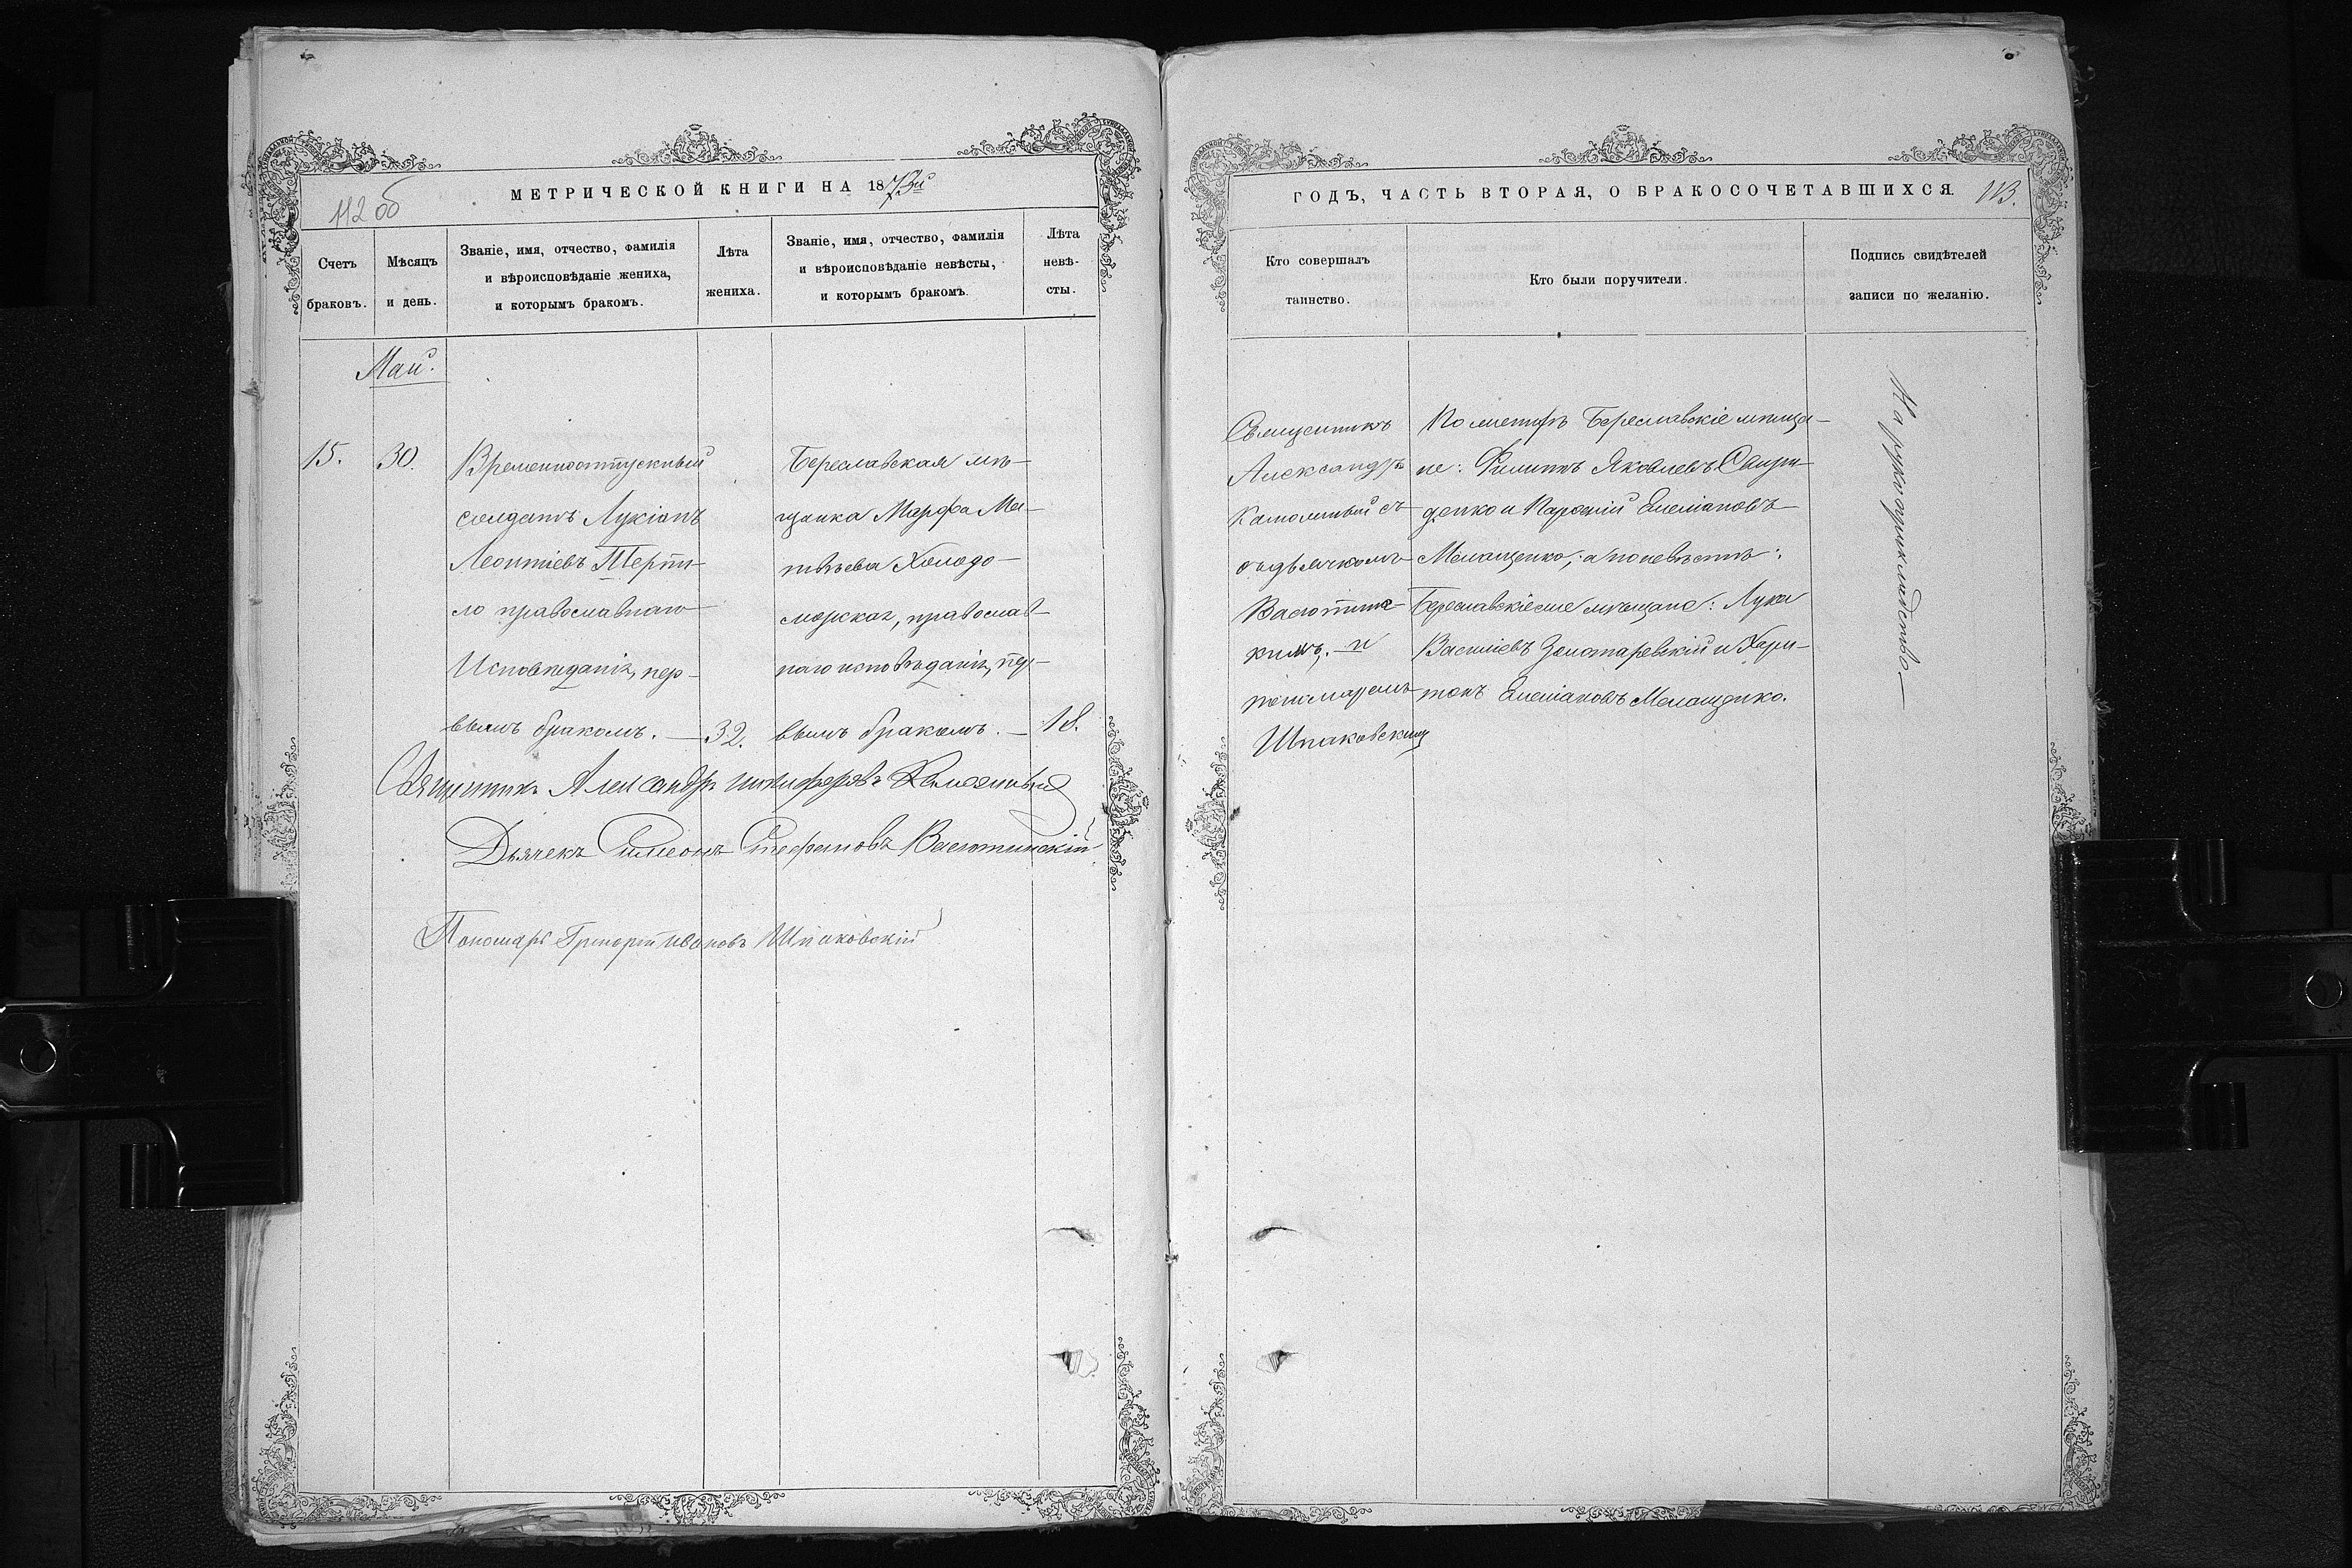 112 об
МЕТРИЧЕСКОЙ КНИГИ НА 1873й
Счетъ браковъ.
Мѣсяцъ и день.
Званіе, имя, отчество, фамилія
и вѣроисповѣданіе жениха,
и которымъ бракомъ.
Лѣта жениха.
Званіе, имя, отчество, фамилія
и вѣроисповѣданіе невѣсты,
и которымъ бракомъ.
Лѣта невѣ-
сты.
Май.
15.
30.
Временноотпускный
солдатъ Лукіанъ
Леонтіевъ Терти-
ло православнаго
Исповѣданія, пер-
вымъ бракомъ. —
32.
Береславская мѣ-
щанка Марфа Ма-
твѣева Холодо-
морская, православ-
наго исповѣданія, пер-
вымъ бракомъ. —
18.
Священникъ Александръ Никифоровъ Каменный
Дьячекъ Симеонъ Стефановъ Васютинскій
Пономарь Григорій Ивановъ Шпаковскій
ГОДЪ, ЧАСТЬ ВТОРАЯ, О БРАКОСОЧЕТАВШИХСЯ.
113.
Кто совершалъ
таинство.
Кто были поручители.
Подпись свидѣтелей
записи по желанію.
Священникъ
Александръ
Каменный съ
дьячкомъ
Васютинс-
кимъ. и
пономаремъ
Шпаковскимъ
По женихѣ Береславскіе мѣща-
не: Филиппъ Яковлевъ Свири-
денко и Парѳеній Емеліановъ
Мелащенко; а по невѣстѣ:
Береславскіе же мѣщане: Лука
Василіевъ Золотаревскій и Хари-
тонъ Емеліановъ Мелащенко.
На рукоприкладство —